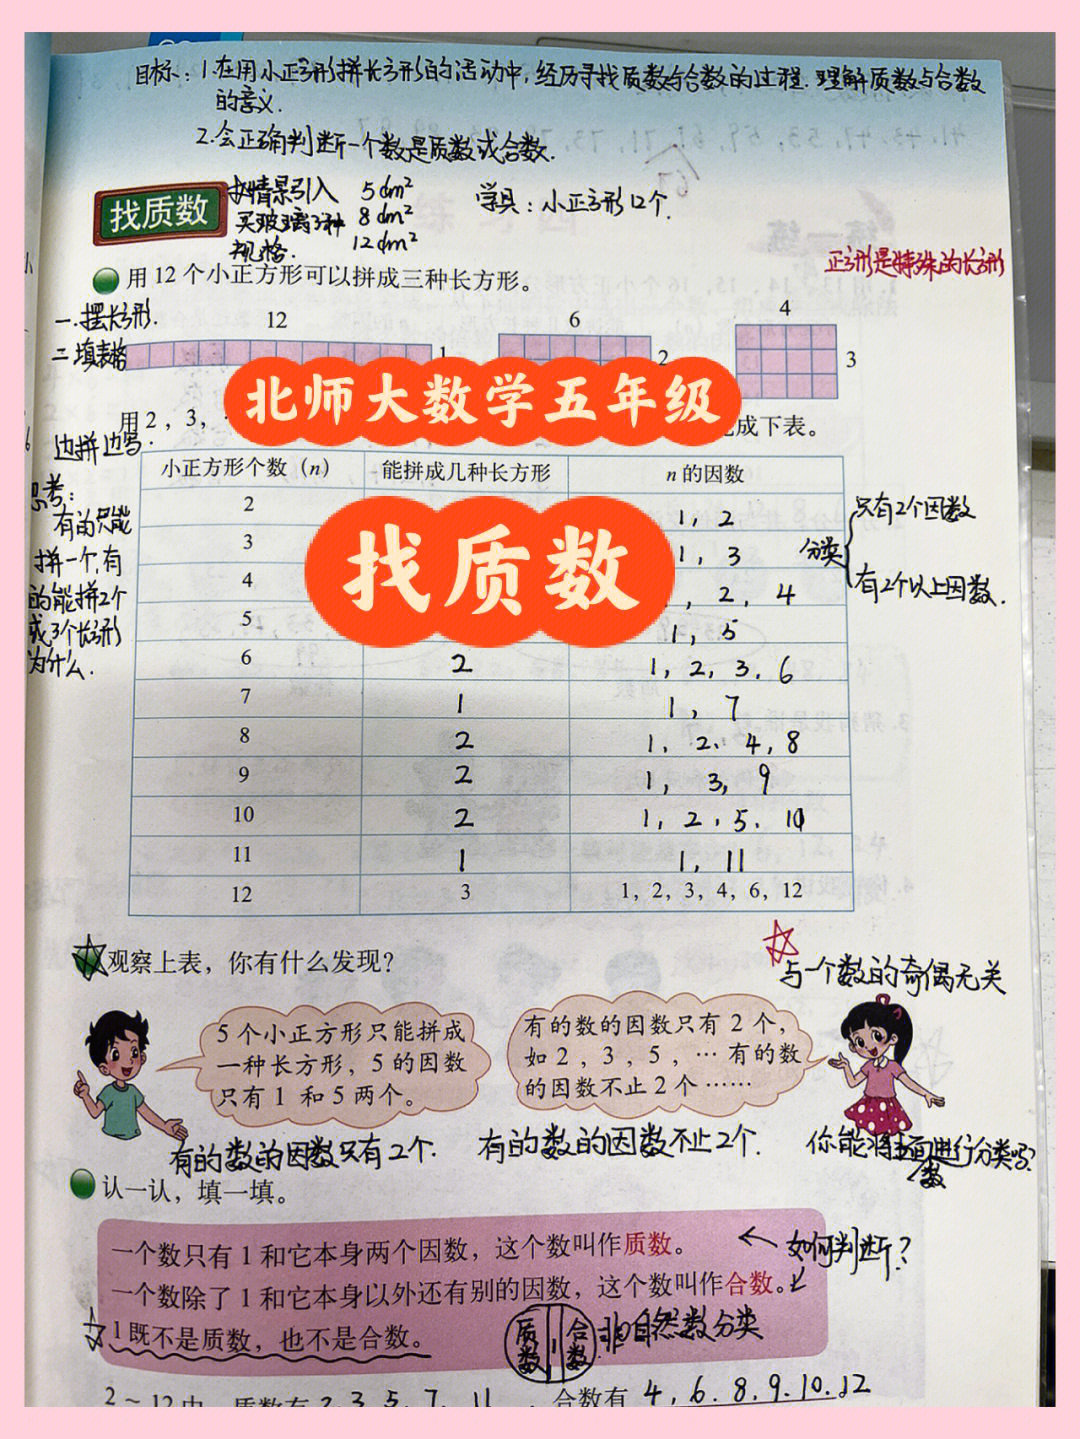 目标：1.在用小正方形拼长方形的活动中，经历寻找质数与合数的过程.理解质数与合数
的意义.
2.会正确判断一个数是质数或合数.
找质数
情景引入 5dm²
买玻璃3种 8dm²
规格. 12dm²
学具：小正方形12个.
正方形是特殊的长方形
用 12 个小正方形可以拼成三种长方形。
一.摆长方形.
二填表格
12
1
6
2
4
3
北师大数学五年级
用 2，3，
成下表。
边拼边写.
思考：
有的只能
拼一个,有
的能拼2个
或3个长方形
为什么.
小正方形个数（n） 能拼成几种长方形 n 的因数
2 1，2
3 1，3
4 ，2，4
5 1，5
6 2 1，2，3，6
7 1 1，7
8 2 1，2、4，8
9 2 1，3，9
10 2 1，2，5．10
11 1 1，11
12 3 1，2，3，4，6，12
找质数
分类
只有2个因数
有2个以上因数.
观察上表，你有什么发现？
与一个数的奇偶无关
5 个小正方形只能拼成
一种长方形，5 的因数
只有 1 和 5 两个。
有的数的因数只有 2 个，
如 2，3，5，… 有的数
的因数不止 2 个……
有的数的因数只有2个.
有的数的因数不止2个.
你能将上面进行分类吗？
数
认一认，填一填。
一个数只有 1 和它本身两个因数，这个数叫作质数。
一个数除了 1 和它本身以外还有别的因数，这个数叫作合数。
1 既不是质数，也不是合数。
←如何判断？
质数 1 合数
非0自然数分类
2～12中，质数有 2.3.5.7. 11 ，合数有 4，6．8．9．10．12